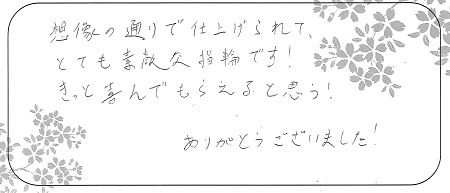 想像の通りで仕上げられて、
とても素敵な指輪です!
きっと喜んでもらえると思う!
ありがとうございました!